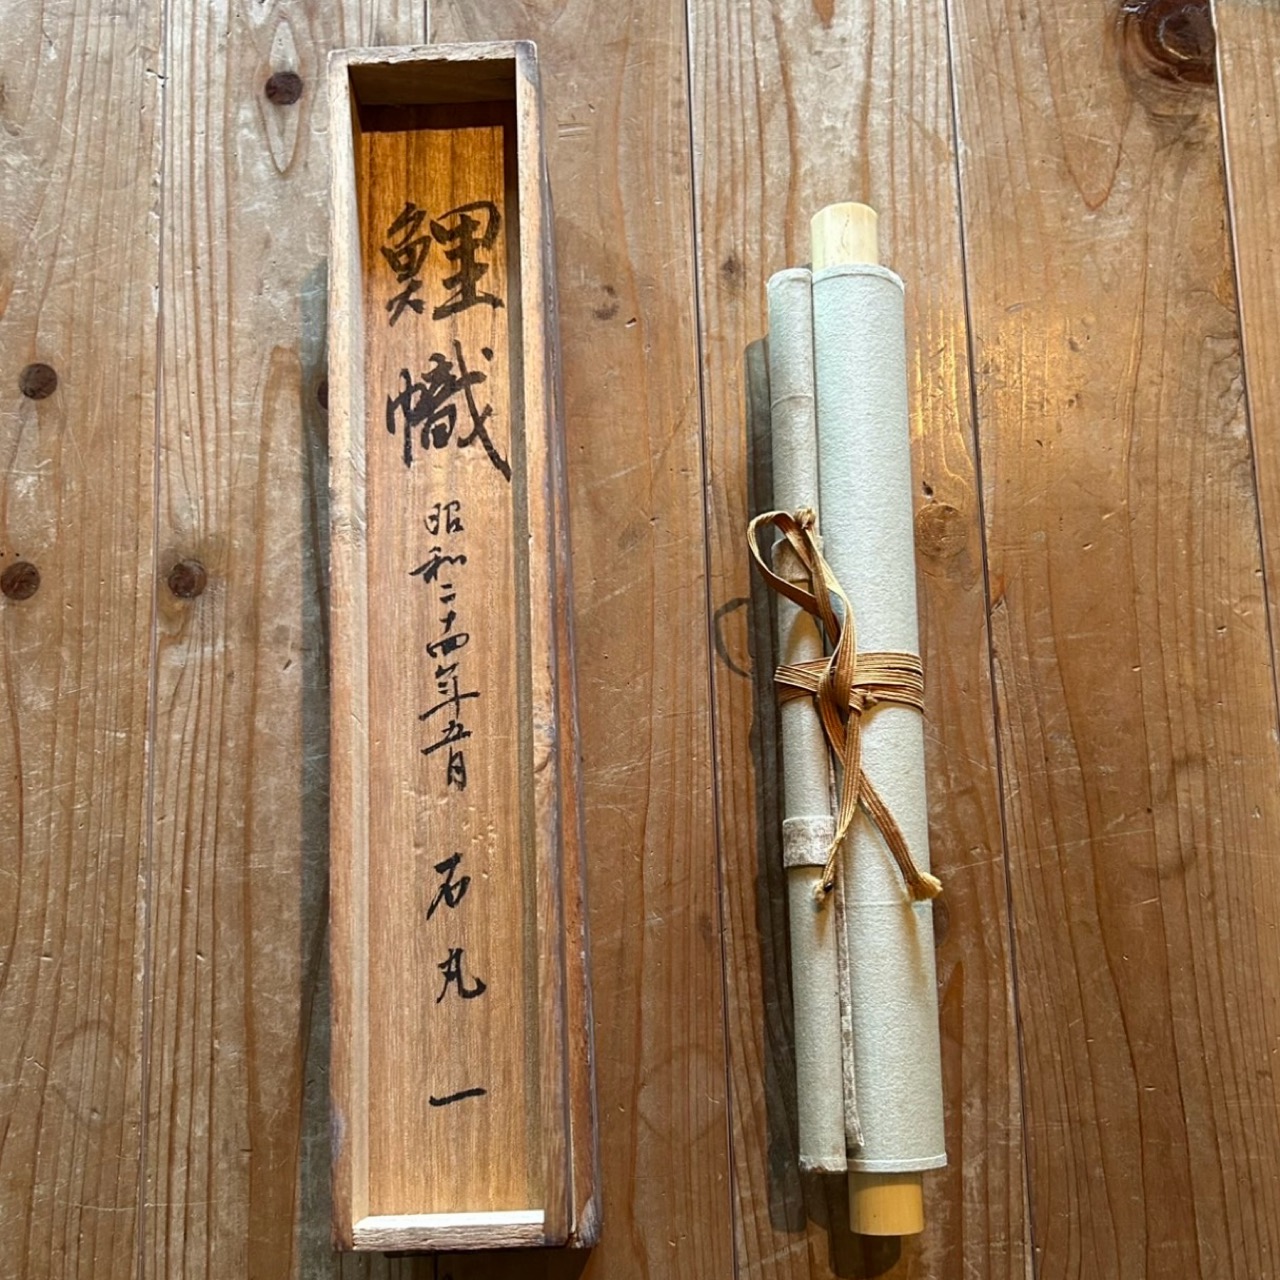 鯉幟
昭和二十四年五月
石丸一